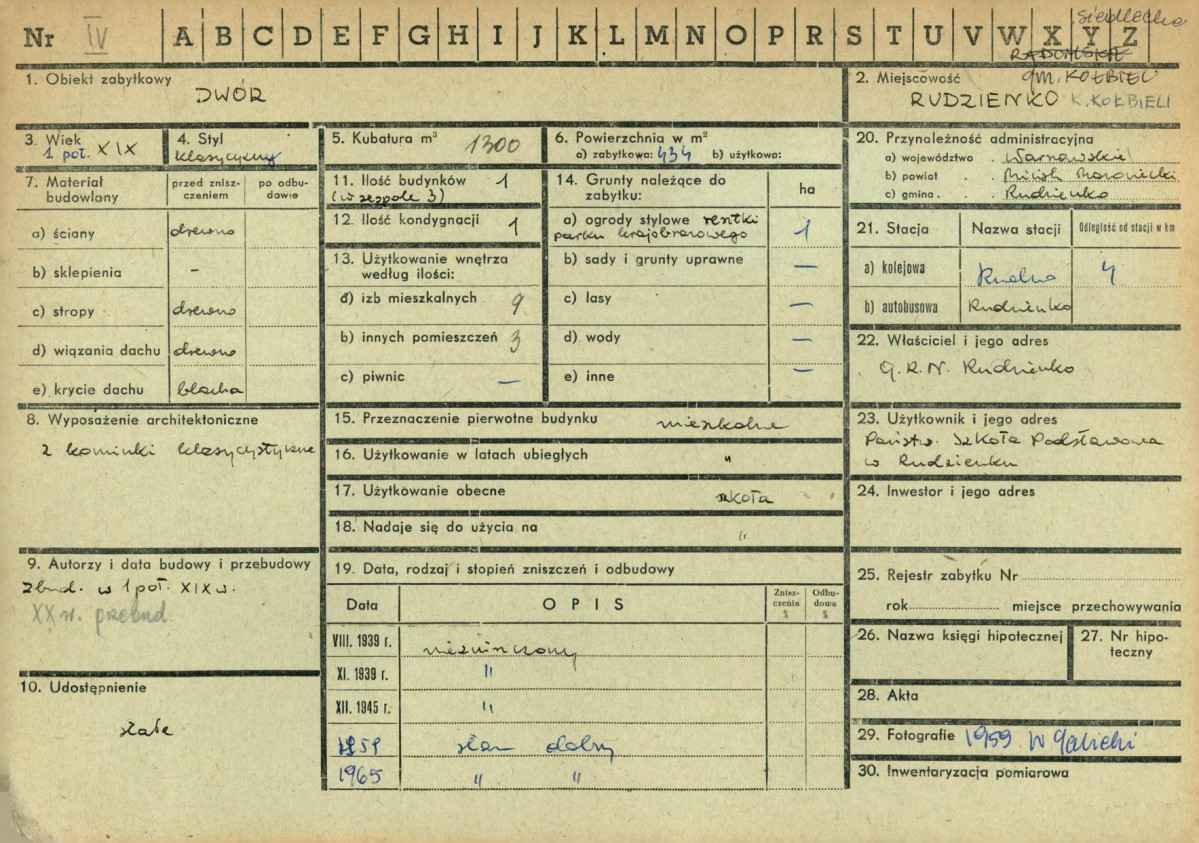 siedleckie
Nr IV A B C D E F G H I J K L M N O P R S T U V W X Y Z
RADOMSKIE
1. Obiekt zabytkowy
DWÓR
2. Miejscowość gm. KOŁBIEL
RUDZIENKO K. KOŁBIELI
3. Wiek
1 poł. XIX
4. Styl
klasycyzny
5. Kubatura m³ 1300
6. Powierzchnia w m²
a) zabytkowa: 434 b) użytkowa:
7. Materiał budowlany
przed zniszczeniem
po odbudowie
a) ściany drewno
b) sklepienia –
c) stropy drewno
d) wiązania dachu drewno
e) krycie dachu blacha
8. Wyposażenie architektoniczne
2 kominki klasycystyczne
9. Autorzy i data budowy i przebudowy
zbud. w 1 poł. XIX w.
XX w. przebud
10. Udostępnienie
stałe
11. Ilość budynków 1
(w zespole 3)
12. Ilość kondygnacji 1
13. Użytkowanie wnętrza
według ilości:
a) izb mieszkalnych 9
b) innych pomieszczeń 3
c) piwnic –
14. Grunty należące do
zabytku:
ha
a) ogrody stylowe resztki
parku krajobrazowego 1
b) sady i grunty uprawne –
c) lasy –
d) wody –
e) inne –
15. Przeznaczenie pierwotne budynku mieszkalne
16. Użytkowanie w latach ubiegłych "
17. Użytkowanie obecne szkoła
18. Nadaje się do użycia na "
19. Data, rodzaj i stopień zniszczeń i odbudowy
Data
OPIS
Zniszczenia %
Odbudowa %
VIII. 1939 r. niezniszczony
XI. 1939 r. "
XII. 1945 r. "
1959 stan dobry
1965 " "
20. Przynależność administracyjna
a) województwo . Warszawskie
b) powiat . . Mińsk Mazowiecki
c) gmina . . Rudzienko
21. Stacja
Nazwa stacji
Odległość od stacji w km
a) kolejowa Rudno 4
b) autobusowa Rudzienko
22. Właściciel i jego adres
G.R.N. Rudzienko
23. Użytkownik i jego adres
Państw. Szkoła Podstawowa
w Rudzienku
24. Inwestor i jego adres
25. Rejestr zabytku Nr
rok miejsce przechowywania
26. Nazwa księgi hipotecznej
27. Nr hipoteczny
28. Akta
29. Fotografie 1959 W Galicki
30. Inwentaryzacja pomiarowa